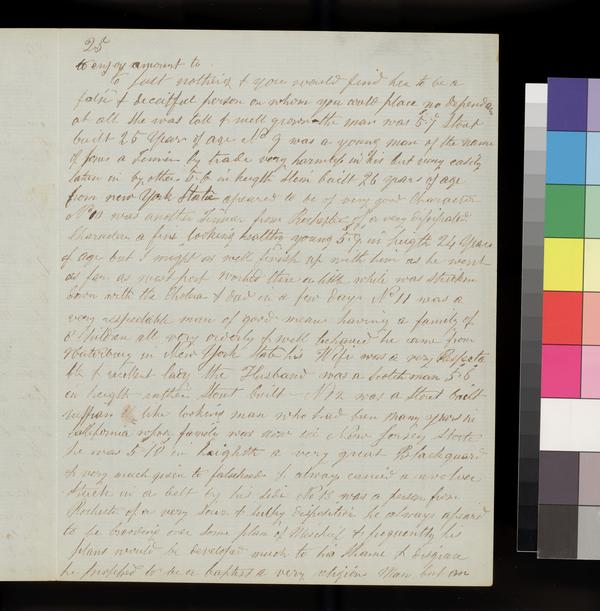 25
to enjoy amount to
Just nothing & you would find her to be a
false & deceitful person on whom you could place no dependan
at all She was tall & well grown the man was 5.7 Stout
built 25 Years of age No 9 was a young man of the name
of a Tinner by trade very harmless in his but very easily
taken in by others 5.6 in heigth Slim built 26 years of age
from new York State apeared to be of very good Character
No 10 was another Tinner from Rochester of a very dissipated
Character a fine looking healthy young 5.9 in heigth 24 Years
of age but I might as well finish up with him as he went
as far as west port where there a little while was stricken
down with the Cholera & died in a few days No 11 was a
very respectable man of good means having a family of
8 Children all very orderly & well behaved he came from
Waterbury in New York State his Wife was a very Respecta
ble & excellent lady the Husband was a Scotchman 5.6
in heigth rather Stout built No 12 was a Stout built
ruffian like looking man who had been many years in
California whose family was now in New Jersey State
he was 5/10 in heighth a very great Blackguard
& very much given to falsehood & always carried a revolver
Stuck in a belt by his side No 13 was a person from
Rochester of a very Sour & sulky disposition he always apeard
to be brooding over some plan of Mischief & frequently his
plans would be developed much to his Shame & disgrace
he professed to be a baptist a very religious Man but on